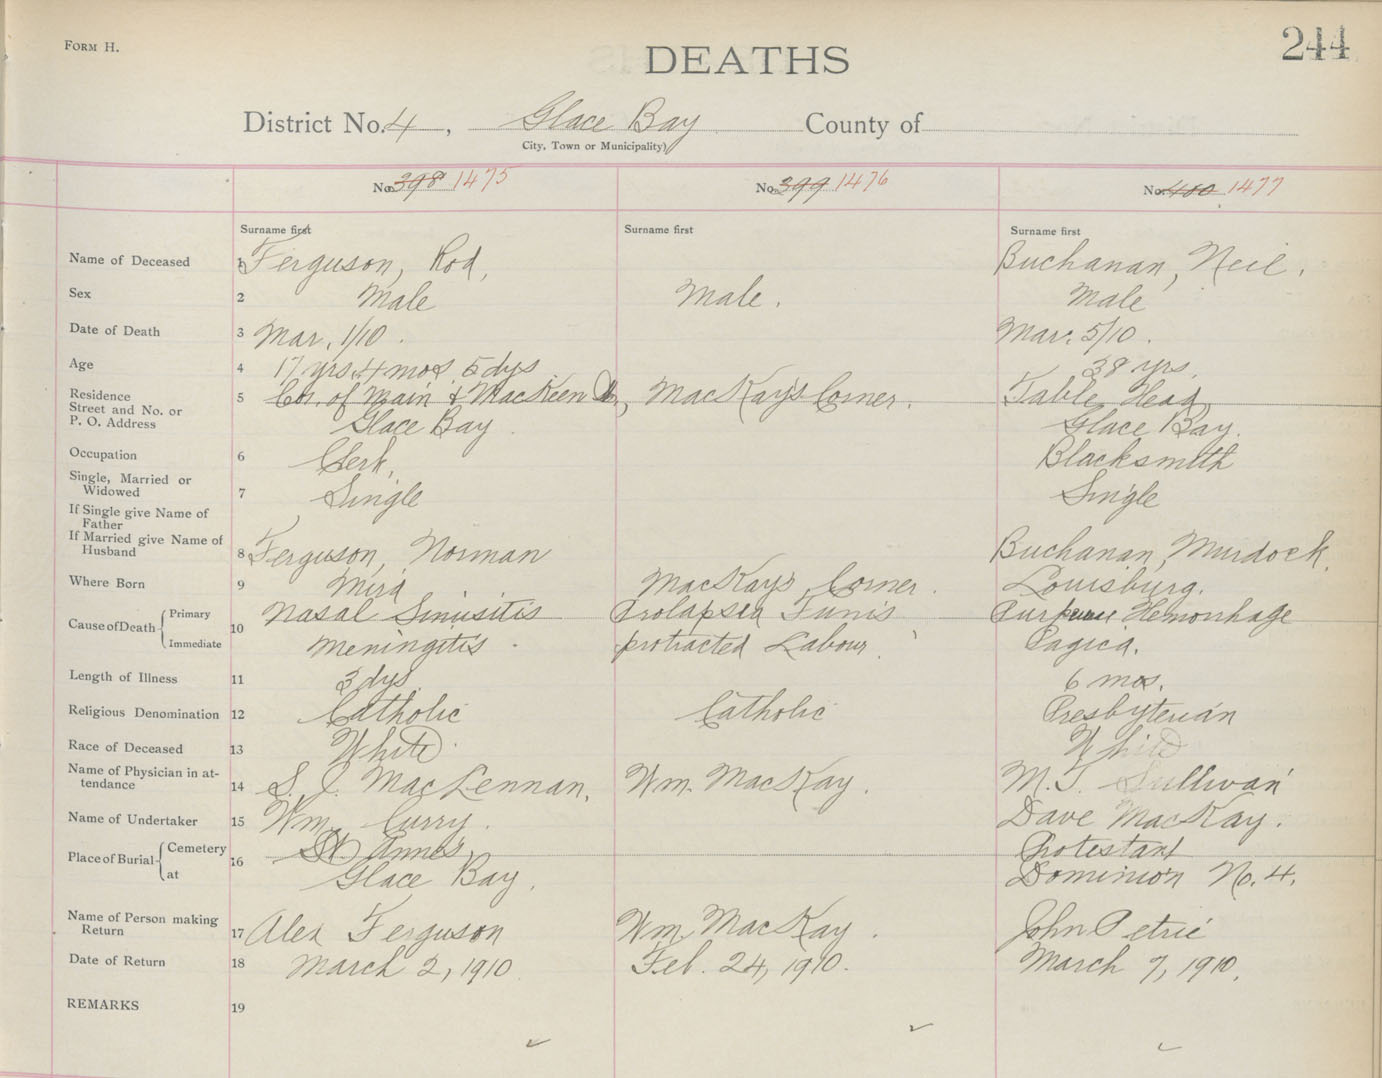 FORM H.
244
DEATHS
District No. 4, Glace Bay County of
City, Town or Municipality)
No. 398 1475
No. 399 1476
No. 400 1477
Surname first Surname first Surname first
Name of Deceased 1 Ferguson, Rod, Buchanan, Neil.
Sex 2 Male Male. Male
Date of Death 3 Mar. 1/10. Mar. 5/10.
Age 4 17 yrs. 4 mos 5 dys 38 yrs.
Residence 5 Cor. of Main & MacKeen MacKay's Corner. Table Head
Street and No. or
P. O. Address Glace Bay Glace Bay.
Occupation 6 Clerk, Blacksmith
Single, Married or
Widowed 7 Single Single
If Single give Name of
Father
If Married give Name of
Husband 8 Ferguson, Norman Buchanan, Murdock.
Where Born 9 Mira MacKay's Corner. Louisburg.
Cause of Death Primary 10 Nasal Sinusitis Prolapsed Funis Hemorrhage
Immediate Meningitis protracted Labour.
Length of Illness 11 3 dys. 6 mos.
Religious Denomination 12 Catholic Catholic Presbyterian
Race of Deceased 13 White White
Name of Physician in at-
tendance 14 S. J. MacLennan, Wm. MacKay. M. T. Sullivan
Name of Undertaker 15 Wm. Curry. Dave MacKay.
Place of Burial Cemetery 16 St Anne's, Protestant
at Glace Bay. Dominion No. 4.
Name of Person making
Return 17 Alex Ferguson Wm. MacKay. John Petrie
Date of Return 18 March 2, 1910 Feb. 24, 1910. March 7, 1910.
REMARKS 19